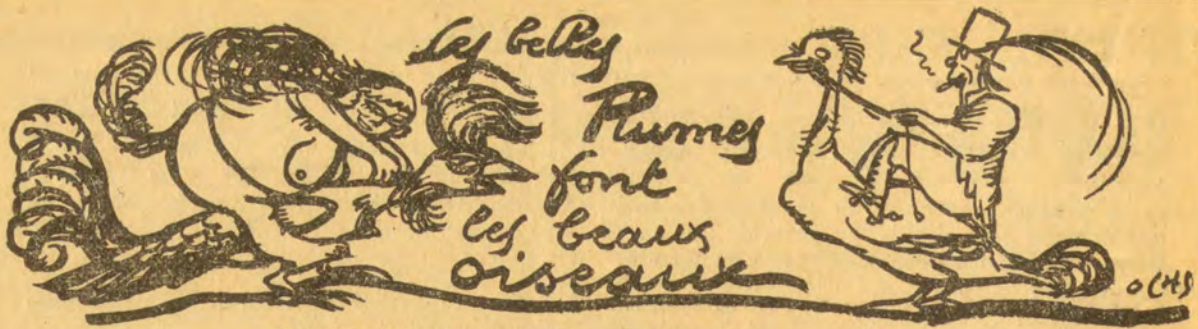 les belles
Plumes
font
les beaux
oiseaux
OCHS